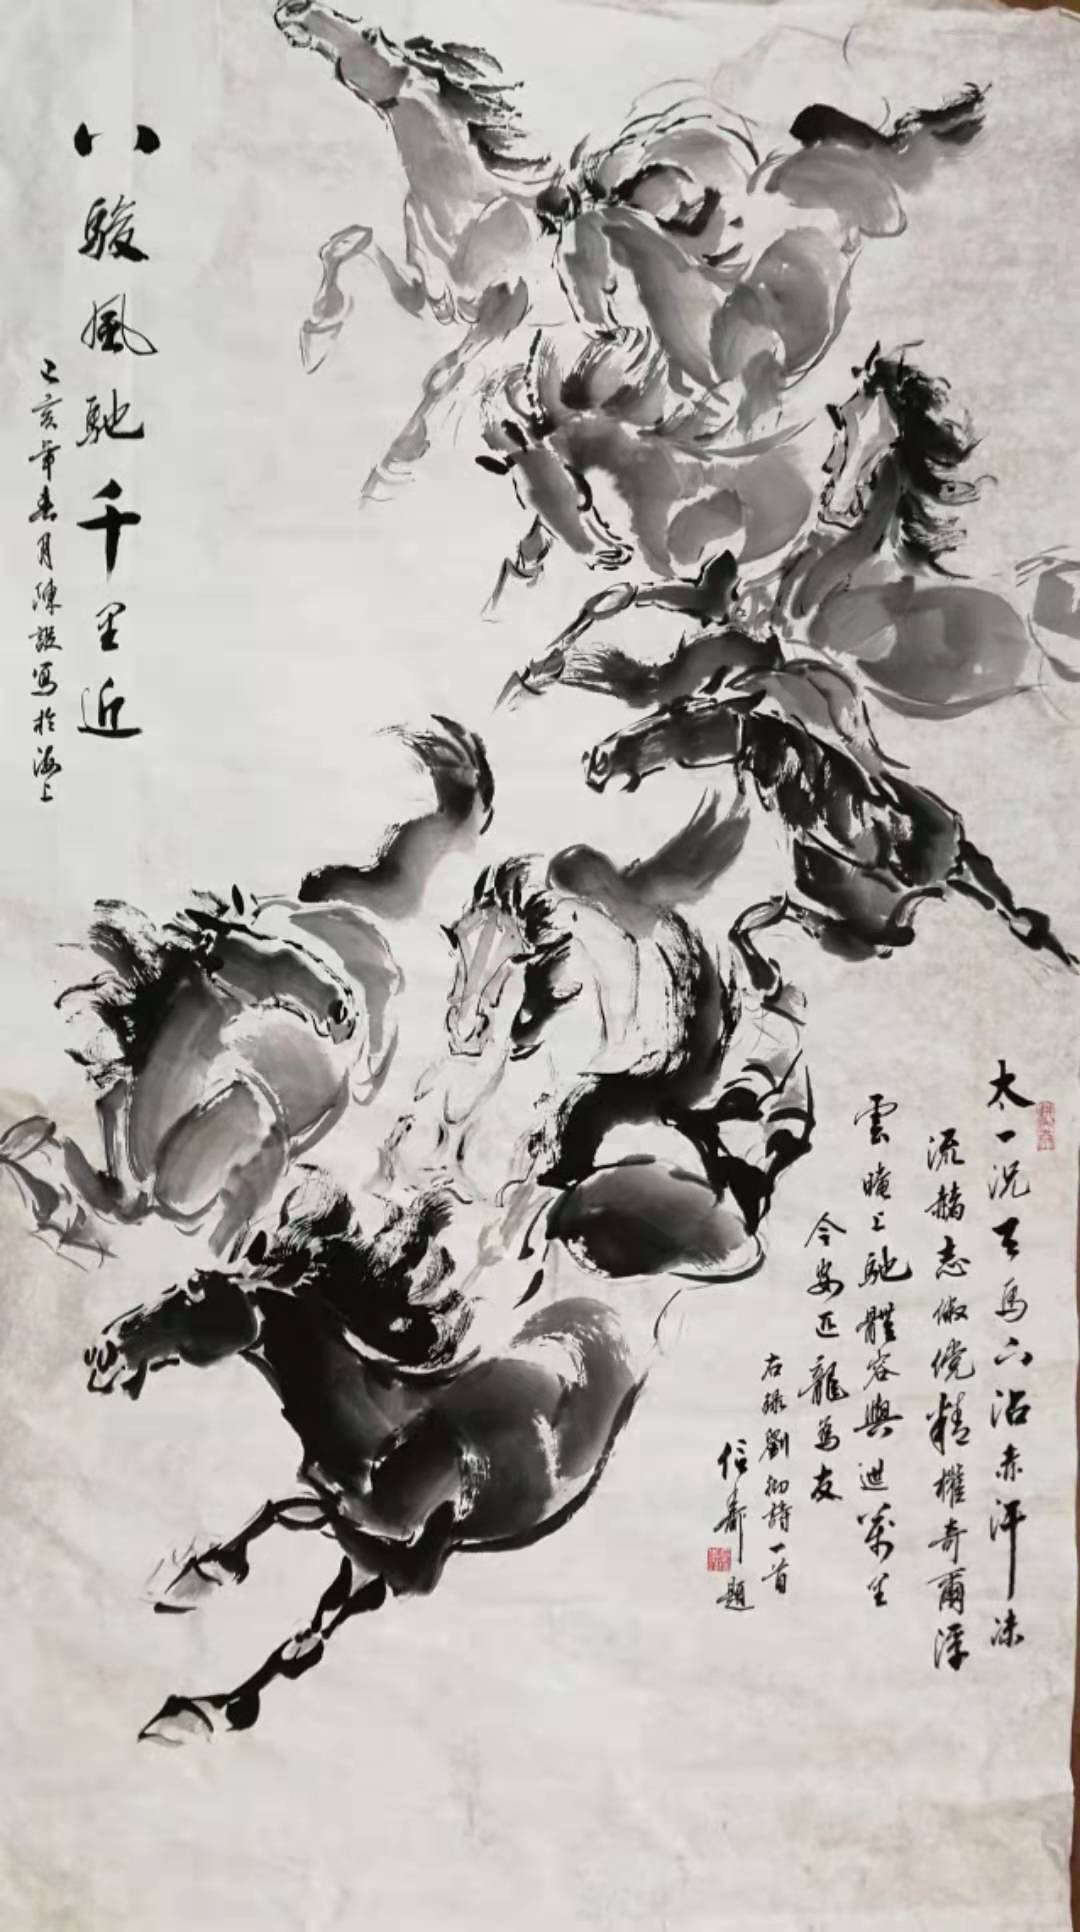 太一況天馬下沾赤汗沫
流赭志俶儻精權奇爾浮
雲晻上馳體容與迣萬里
今安匹龍為友
右録劉彻詩一首
信寿題
八駿風馳千里近
己亥年春月陳寫於海上